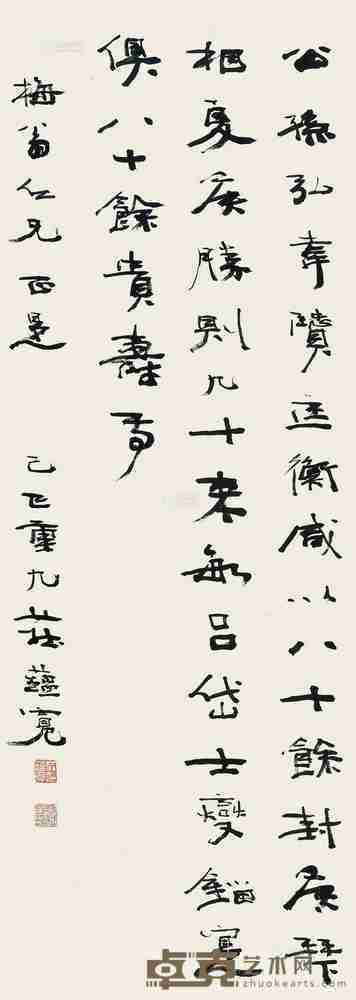 公孫弘韋賢匡衡咸以八十餘封侯拜
相夏侯勝則九十來無呂岱士燮
俱八十餘貴壽考
梅翁仁兄 正是 己巳重九莊蘊寬
卓克艺术网
www.zhuokearts.com